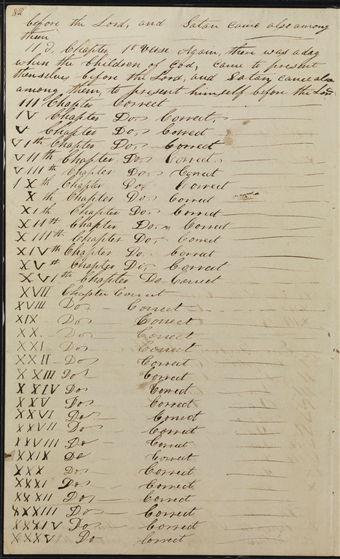 82
before the Lord, and Satan came also among
them
II d, Chapter 1st verse Again, there was a day
when the Children of God, came to present
themselves before the Lord, and Satan came also
among them, to present himself before the Lord
III Chapter Correct
IV Chapter Do, Correct
V Chapter Do, Correct
VIth Chapter Do, Correct
VIIth Chapter Do, Correct
VIIIth Chapter Do, Correct
IXth Chapter Do, Correct
Xth Chapter Do, Correct
XIth Chapter Do, Correct
XIIth Chapter Do, Correct
XIIIth Chapter Do, Correct
XIVth Chapter Do, Correct
XVth Chapter Do, Correct
XVIth Chapter Do Correct
XVII Chapter Correct
XVIII Do, Correct
XIX Do, Correct
XX Do, Correct
XXI Do, Correct
XXII Do, Correct
XXIII Do, Correct
XXIV Do, Correct
XXV Do, Correct
XXVI Do, Correct
XXVII Do, Correct
XXVIII Do Correct
XXIX Do Correct
XXX Do, Correct
XXXI Do, Correct
XXXII Do, Correct
XXXIII Do, Correct
XXXIV Do, Correct
XXXV Do Correct